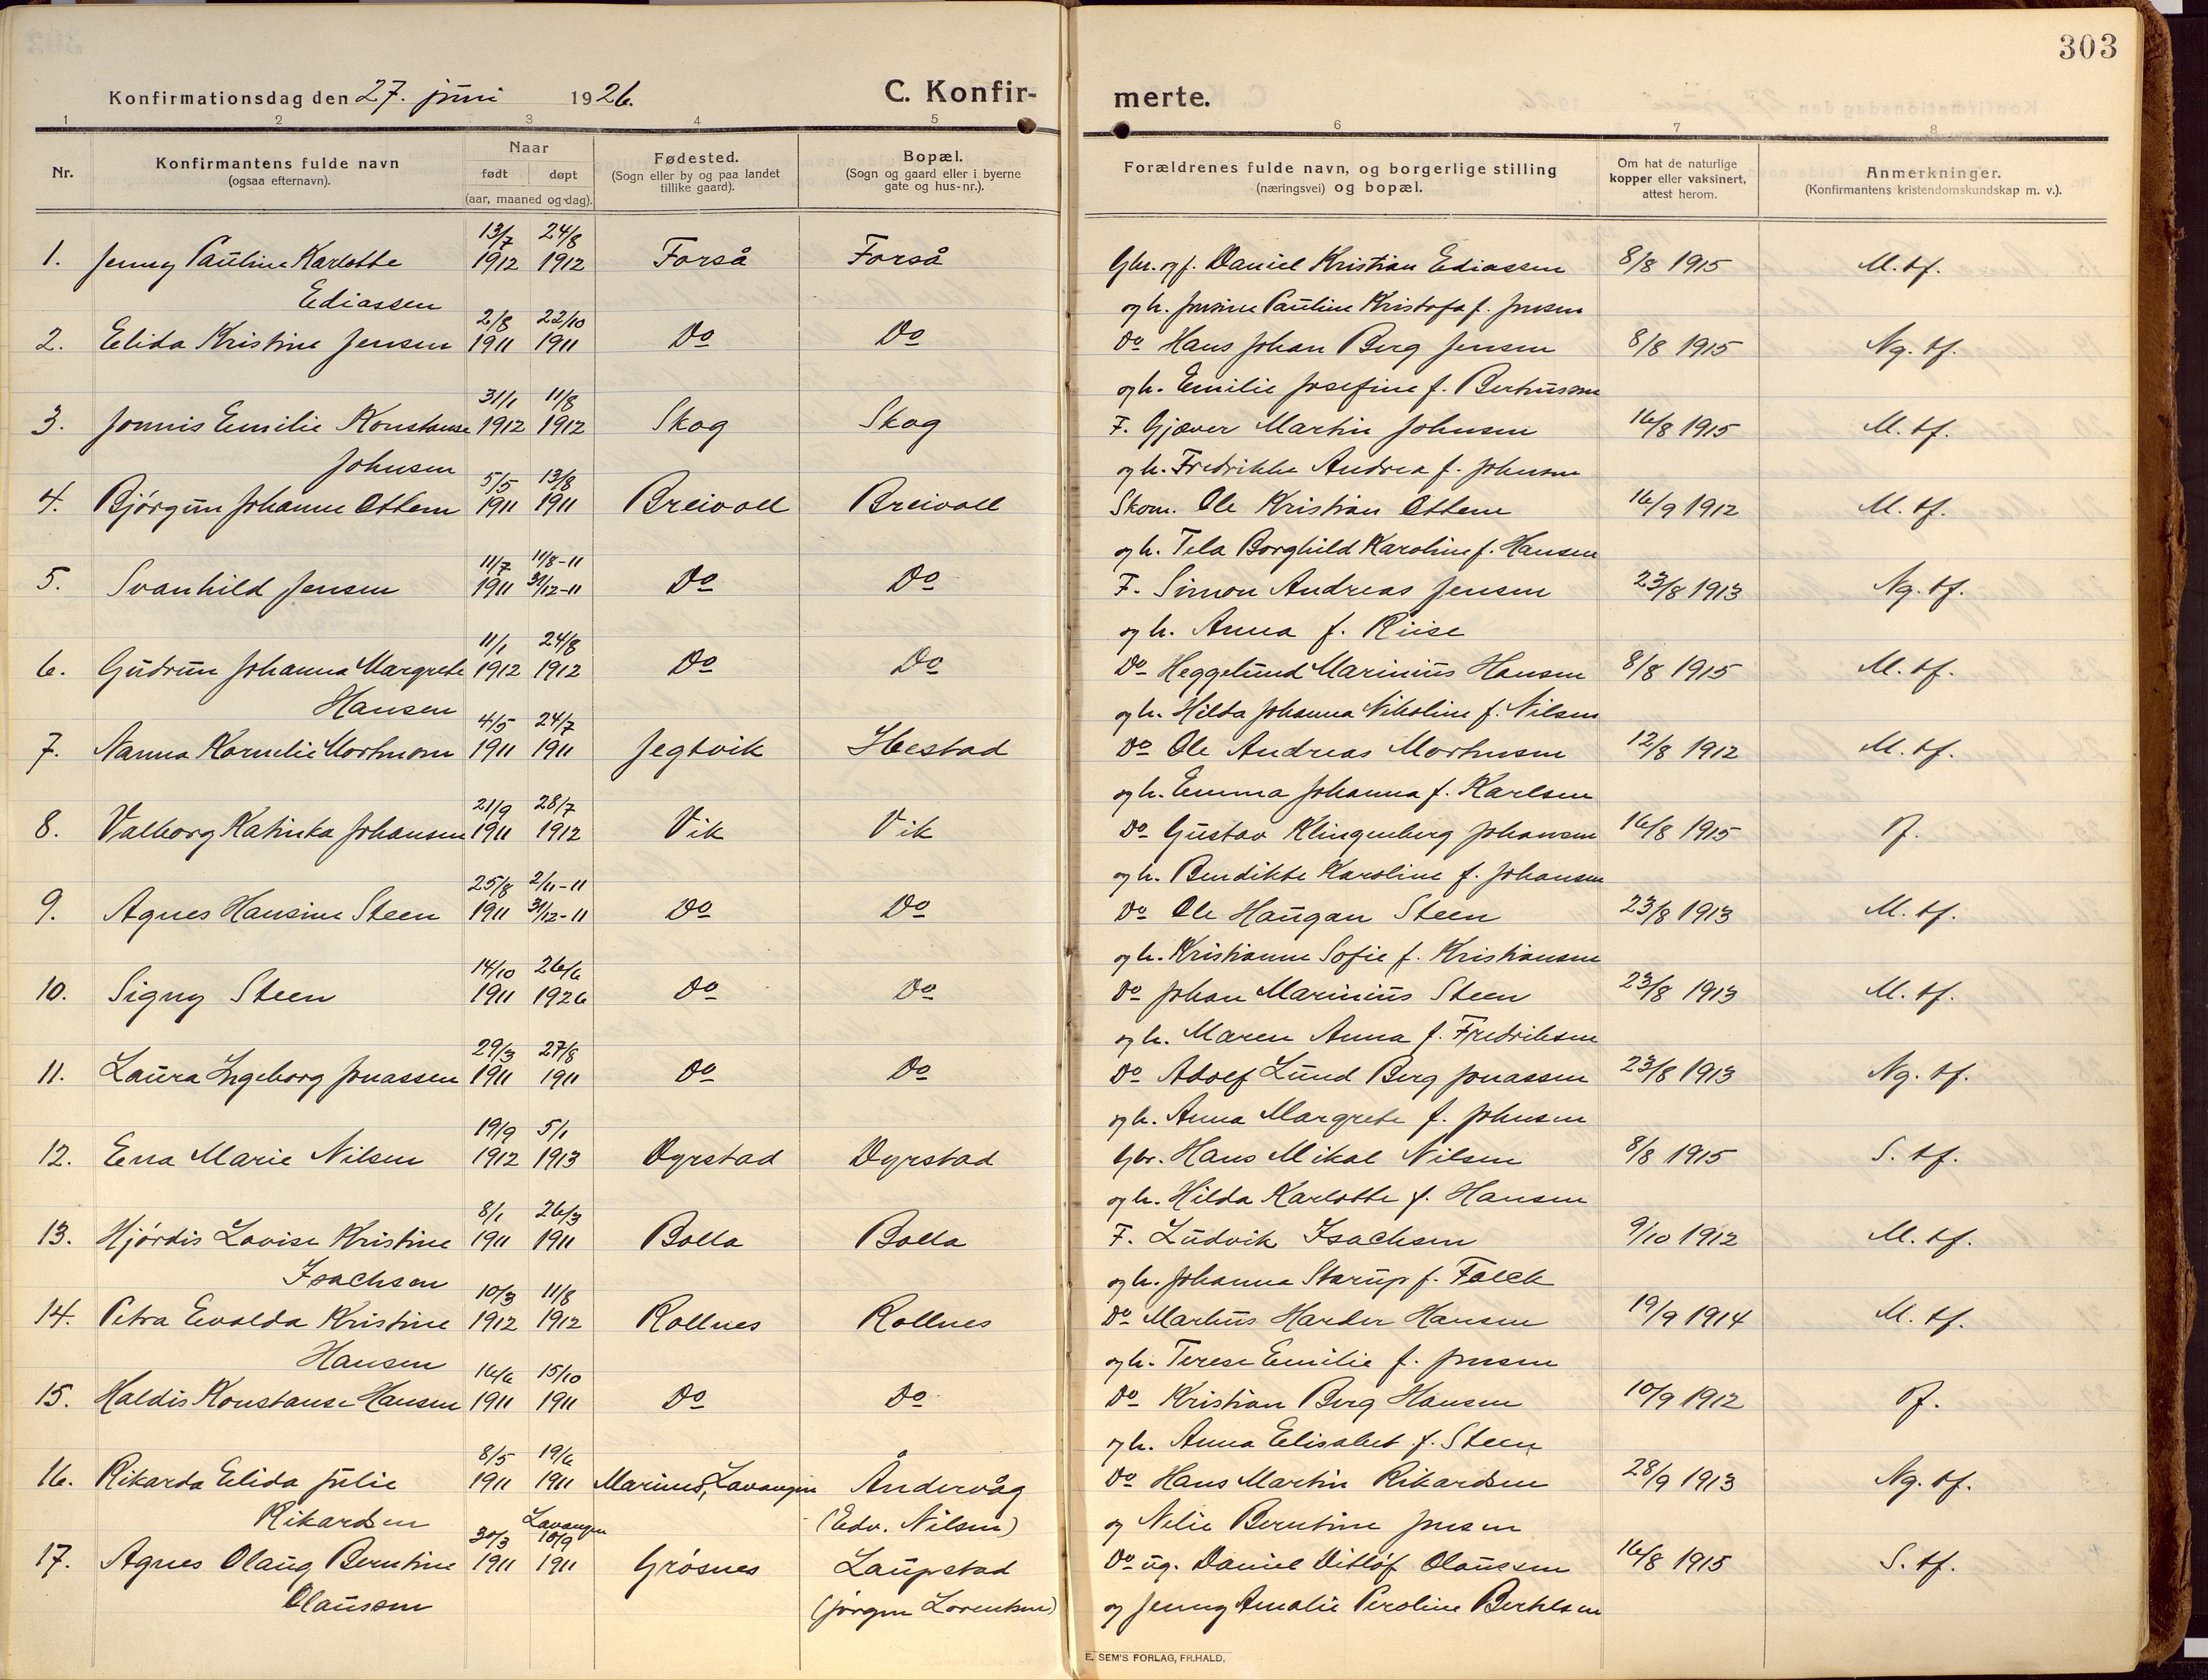 303
Konfirmationsdag den 27. juni 1926. C. Konfir- merte.
1 2 3 4 5 6 7 8
Nr. Konfirmantens fulde navn (ogsaa efternavn). Naar født døpt (aar, maaned og dag). Fødested. (Sogn eller by og paa landet tillike gaard). Bopæl. (Sogn og gaard eller i byerne gate og hus-nr.). Forældrenes fulde navn, og borgerlige stilling (næringsvei) og bopæl. Om hat de naturlige kopper eller vaksinert, attest herom. Anmerkninger. (Konfirmantens kristendomskundskap m. v.).
13/7 24/8
1. Jenny Pauline Karlotte 1912 1912 Forså Forså Gbr. og f. Daniel Kristian Ediassen 8/8 1915 M. tf.
Ediassen og h. Jensine Pauline Kristofa f. Jensen
2/8 22/10
2. Elida Kristine Jensen 1911 1911 Do Do Do Hans Johan Berg Jensen 8/8 1915 Ng. tf.
og h. Emilie Josefine f. Berthusen
31/1 11/8
3. Jonnis Emilie Konstanse 1912 1912 Skog Skog F. Gjæver Martin Johnsen 16/8 1915 M. tf.
Johnsen og h. Fredrikke Andrea f. Johnsen
5/5 13/8
4. Bjórgun Johanne Ottem 1911 1911 Breivoll Breivoll Skom. Ole Kristian Ottem 16/9 1912 M. tf.
og h. Tela Borghild Karoline f. Hansen
11/7 11/8-11
5. Svanhild Jensen 1911 31/12-11 Do Do F. Simon Andreas Jensen 23/8 1913 Ng. tf.
og h. Anna f. Riise
11/1 24/8
6. Gudrun Johanna Margrete 1912 1912 Do Do Do Heggelund Marinius Hansen 8/8 1915 M. tf.
Hansen og h. Hilda Johanna Nikoline f. Nilsen
4/5 24/7
7. Nanna Kornelie Mortensen 1911 1911 Jegtvik Hestad Do Ole Andreas Mortensen 12/8 1912 M. tf.
og h. Emma Johanna f. Karlsen
21/9 28/7
8. Valborg Katinka Johansen 1911 1912 Vik Vik Do Gustav Klingenberg Johansen 16/8 1915
og h. Bendikte Karoline f. Johansen
25/8 2/11-11
9. Agnes Hansine Steen 1911 31/12-11 Do Do Do Ole Haugan Steen 23/8 1913 M. tf.
og h. Kristianne Sofie f. Kristiansen
14/10 26/6
10. Signy Steen 1911 1926 Do Do Do Johan Marinius Steen 23/8 1913 M. tf.
og h. Maren Anna f. Fredriksen
29/3 27/8
11. Laura Ingeborg Jonassen 1911 1911 Do Do Do Adolf Lund Berg Jonassen 23/8 1913 Ng. tf.
og h. Anna Margrete f. Johnsen
19/9 5/1
12. Ena Marie Nilsen 1912 1913 Dyrstad Dyrstad Gbr. Hans Mikal Nilsen 8/8 1915 S. tf.
og h. Hilda Karlotte f. Hansen
8/1 26/3
13. Hjórdis Lovise Kristine 1911 1911 Bolla Bolla F. Ludvik Isachsen 9/10 1912 M. tf.
Isachsen og h. Johanna Starup f. Falch
10/3 11/8
14. Petra Evalda Kristine 1912 1912 Rollnes Rollnes Do Markus Harder Hansen 19/9 1914 M. tf.
Hansen og h. Terese Emilie f. Jensen
16/6 15/10
15. Haldis Konstanse Hansen 1911 1911 Do Do Do Kristian Berg Hansen 10/9 1912
og h. Anna Elisabet f. Steen
8/5 19/6
16. Rikarda Elida Julie 1911 1911 Lavangen Åndervåg Do Hans Martin Rikardsen 28/9 1913 Ng. tf.
Rikardsen (Edv. Nilsen) og Nelie Berntine Jensen
30/3 Lavangen 10/9
17. Agnes Olaug Berntine 1911 1911 Grósnes Laupstad Do ug. Daniel Ditlóf Olaussen 16/8 1915 S. tf.
Olaussen (Jørgen Lorentsen) og Jenny Amalie Peroline Bertelsen
E. SEM'S FORLAG, FR.HALD.